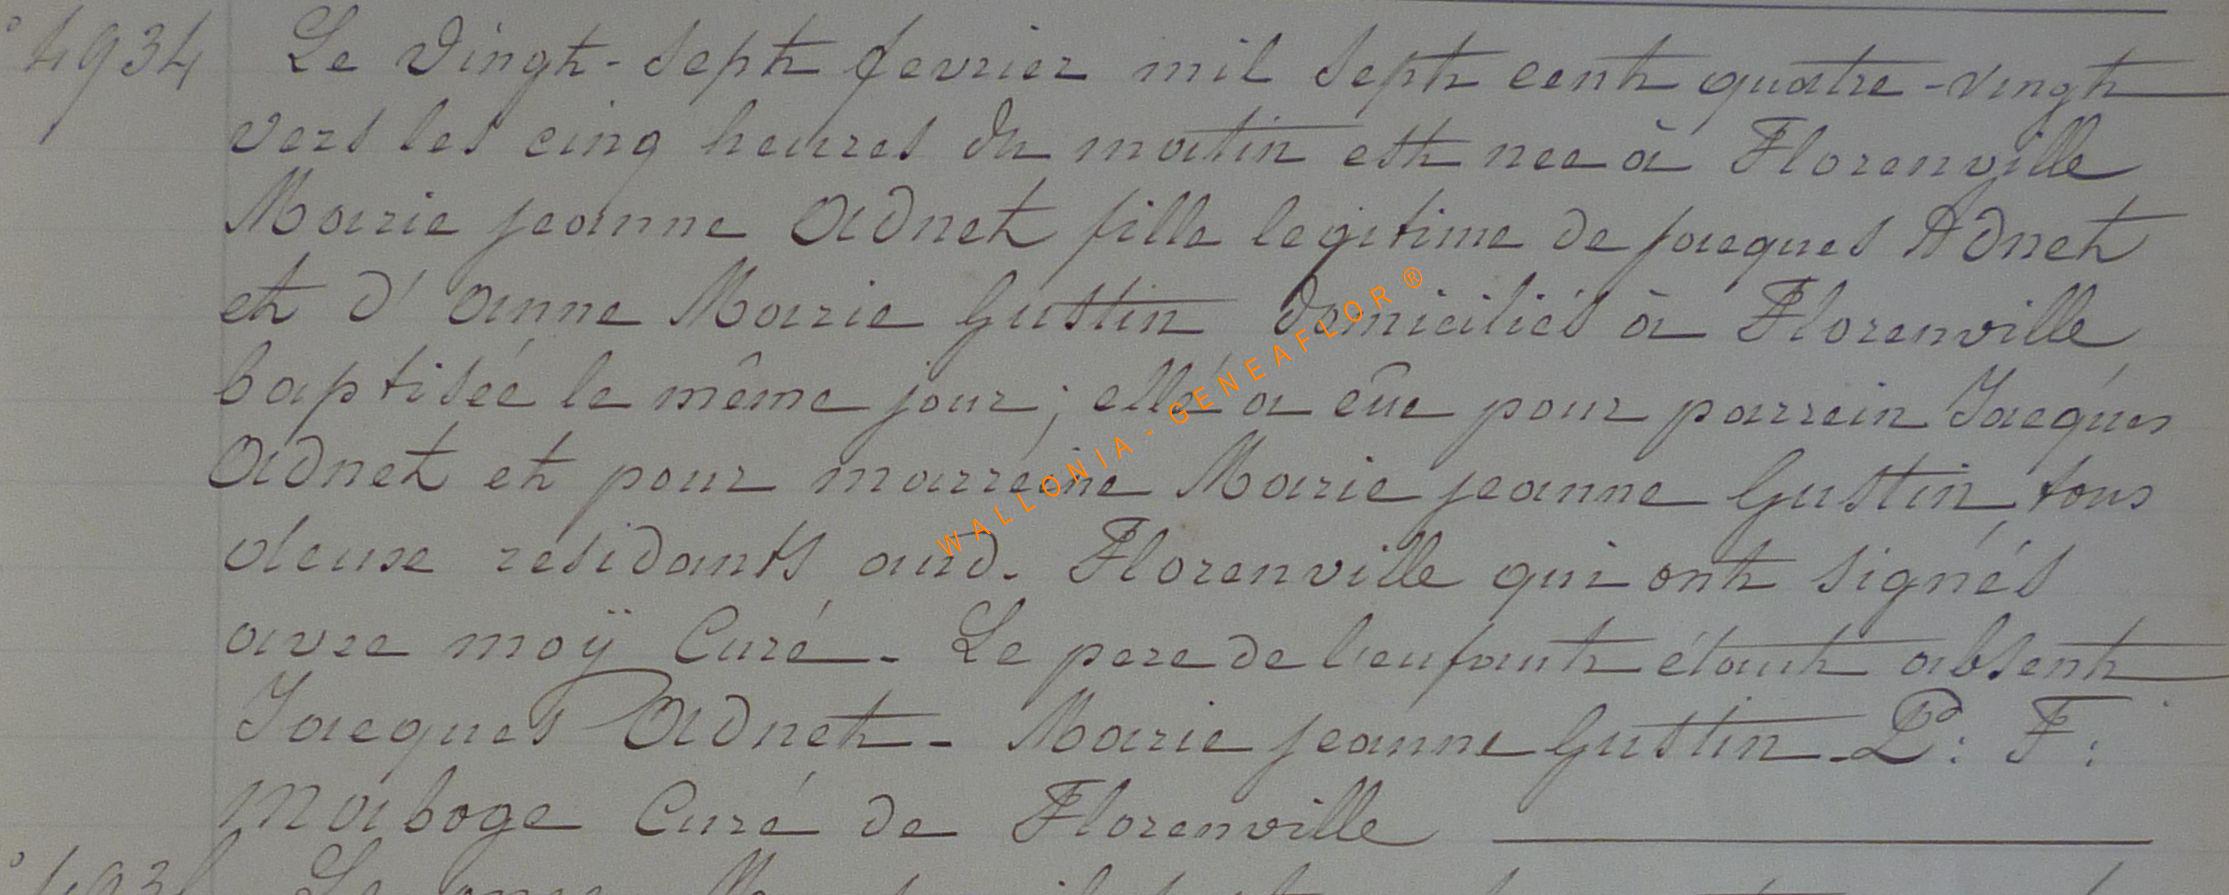 ° 4934 Le Vingt-sept fevrier mil sept cent quatre-vingt
vers les cinq heures du matin est nee à Florenville
Marie jeanne Adnet fille legitime de jacques Adnet
et d'anne Marie Gustin domiciliés à Florenville
baptisée le même jour; elle a eûe pour parrein Jacques
Adnet et pour marreine Marie jeanne Gustin, tous
deuxe residants aud. Florenville qui ont signés
avec moÿ Curé. Le pere de lenfant étant absent
Jacques Adnet - Marie jeanne Gustin - P: F:
Maboge Curé de Florenville
WALLONIA - GENEAFLOR ®